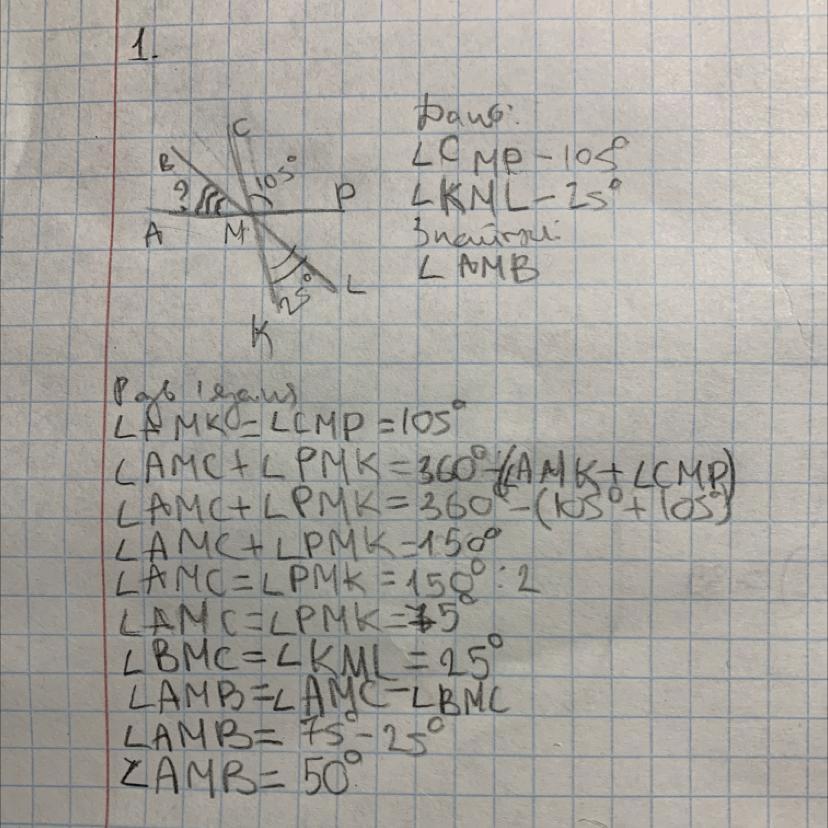 1.
C
B
105°
?
P
A
M
25°
L
K
Дано:
∠CMP - 105°
∠KML - 25°
Знайти:
∠AMB
Розв'язання
∠AMK = ∠CMP = 105°
∠AMC + ∠PMK = 360° - (∠AMK + ∠CMP)
∠AMC + ∠PMK = 360° - (105° + 105°)
∠AMC + ∠PMK = 150°
∠AMC = ∠PMK = 150° : 2
∠AMC = ∠PMK = 75°
∠BMC = ∠KML = 25°
∠AMB = ∠AMC - ∠BMC
∠AMB = 75° - 25°
∠AMB = 50°